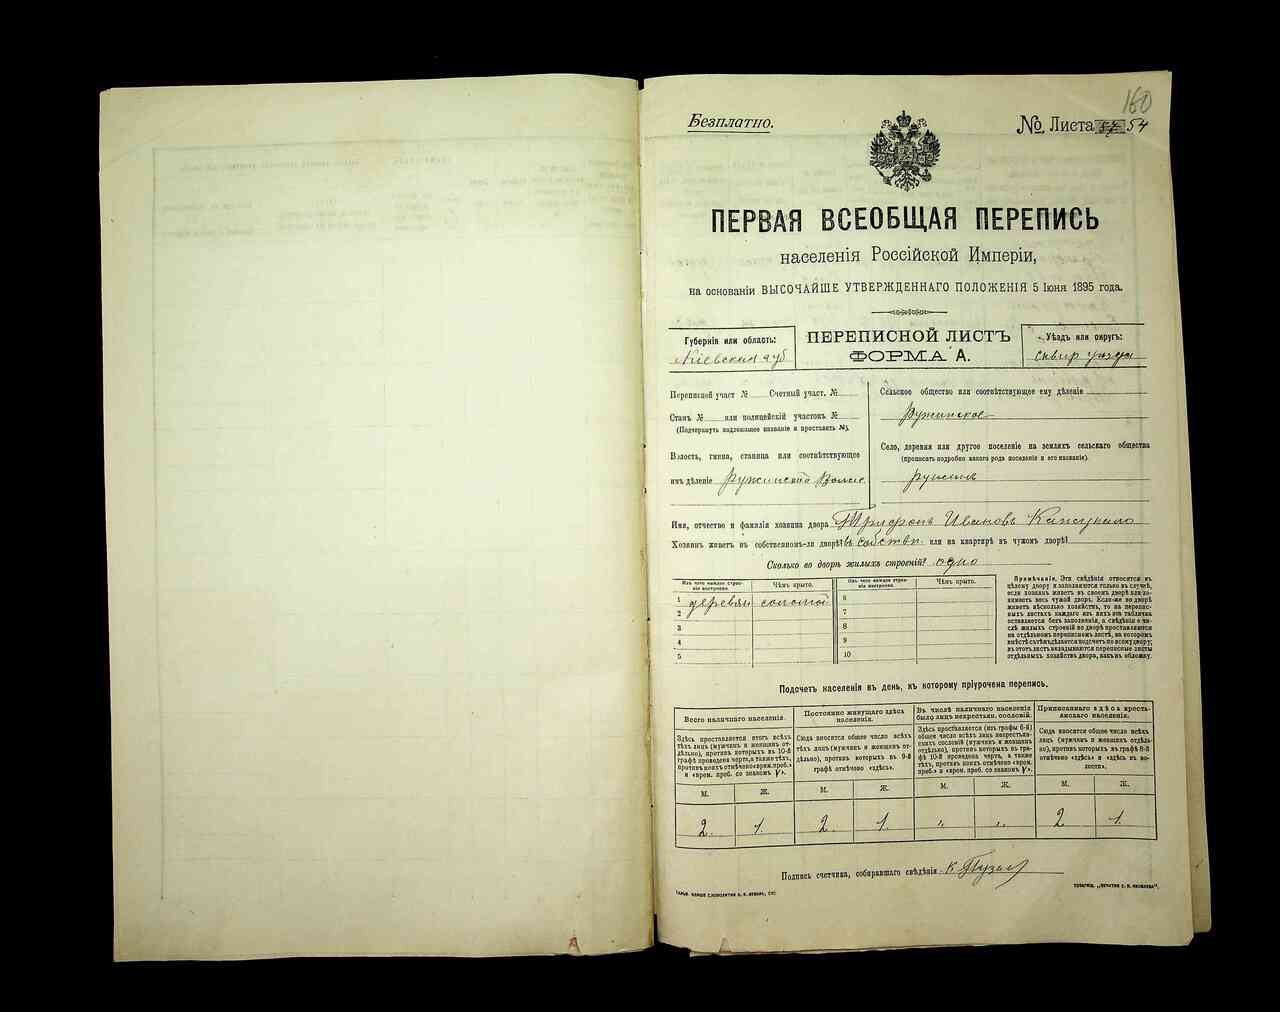 160
Безплатно.
№ Листа 54
ПЕРВАЯ ВСЕОБЩАЯ ПЕРЕПИСЬ
населенія Россійской Имперіи,
на основаніи ВЫСОЧАЙШЕ УТВЕРЖДЕННАГО ПОЛОЖЕНІЯ 5 Іюня 1895 года.
Губернія или область:
Кіевская губ
ПЕРЕПИСНОЙ ЛИСТЪ
ФОРМА А.
Уѣздъ или округъ:
сквир уѣзда
Переписной участ. № Счетный участ. №
Станъ № или полицейскій участокъ №
(Подчеркнуть надлежащее названіе и проставить №).
Волость, гмина, станица или соотвѣтствующее
имъ дѣленіе Ружинской Волос
Сельское общество или соотвѣтствующее ему дѣленіе
Ружинское
Село, деревня или другое поселеніе на земляхъ сельскаго общества
(прописать подробно какого рода поселеніе и его названіе).
Ружинъ
Имя, отчество и фамилія хозяина двора Трифонъ Ивановъ
Хозяинъ живетъ въ собственномъ-ли дворѣ? въ собствн. или на квартирѣ въ чужомъ дворѣ?
Сколько во дворѣ жилыхъ строеній? одно
Изъ чего каждое строеніе построено. Чѣмъ крыто. Изъ чего каждое строеніе построено. Чѣмъ крыто.
1 деревян соломой 6
2 7
3 8
4 9
5 10
Примѣчаніе. Эти свѣдѣнія относятся къ
цѣлому двору и заполняются только въ случаѣ,
если хозяинъ живетъ въ своемъ дворѣ или занимаетъ
весь чужой дворъ. Если-же во дворѣ
живетъ нѣсколько хозяйствъ, то на переписныхъ
листахъ каждаго изъ нихъ эта табличка
оставляется безъ заполненія, а свѣдѣнія о числѣ
жилыхъ строеній во дворѣ проставляются
на отдѣльномъ переписномъ листѣ, на которомъ
вмѣстѣ съ тѣмъ дѣлается подсчетъ по всему двору;
въ этотъ листъ вкладываются переписные листы
отдѣльныхъ хозяйствъ двора, какъ въ обложку.
Подсчетъ населенія въ день, къ которому пріурочена перепись.
Всего наличнаго населенія.
Здѣсь проставляется итогъ всѣхъ
тѣхъ лицъ (мужчинъ и женщинъ отдѣльно),
противъ которыхъ въ 10-й
графѣ проведена черта, а также тѣхъ,
противъ коихъ отмѣчено «врем. проб.»
и «врем. проб. со знакомъ V».
Постоянно живущаго здѣсь населенія.
Сюда вносится общее число всѣхъ
тѣхъ лицъ (мужчинъ и женщинъ отдѣльно),
противъ которыхъ въ 9-й
графѣ отмѣчено «здѣсь».
Въ числѣ наличнаго населенія
было лицъ некрестьян. сословій.
Здѣсь проставляется (изъ графы 6-й)
общее число всѣхъ лицъ некрестьянскихъ
сословій (мужчинъ и женщинъ
отдѣльно), противъ которыхъ въ графѣ
10-й проведена черта, а также
тѣхъ, противъ коихъ отмѣчено «врем.
проб.» и «врем. проб. со знакомъ V».
Приписаннаго здѣсь крестьянскаго населенія.
Сюда вносится общее число всѣхъ
лицъ (мужчинъ и женщинъ отдѣльно),
противъ которыхъ въ графѣ 8-й
отмѣчено «здѣсь» и «здѣсь въ волости».
М. Ж. М. Ж. М. Ж. М. Ж.
2. 1. 2. 1. „ „ 2 1.
Подпись счетчика, собиравшаго свѣдѣнія